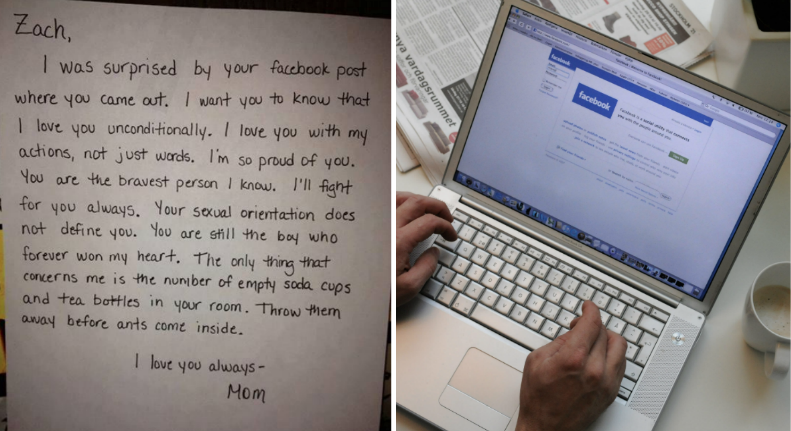 Zach,
I was surprised by your facebook post
where you came out. I want you to know that
I love you unconditionally. I love you with my
actions, not just words. I'm so proud of you.
You are the bravest person I know. I'll fight
for you always. Your sexual orientation does
not define you. You are still the boy who
forever won my heart. The only thing that
concerns me is the number of empty soda cups
and tea bottles in your room. Throw them
away before ants come inside.
I love you always-
Mom
nya vardagsrummet
STOCKHOLM
facebook
facebook
Facebook is a social utility that connects
you with the people around you.